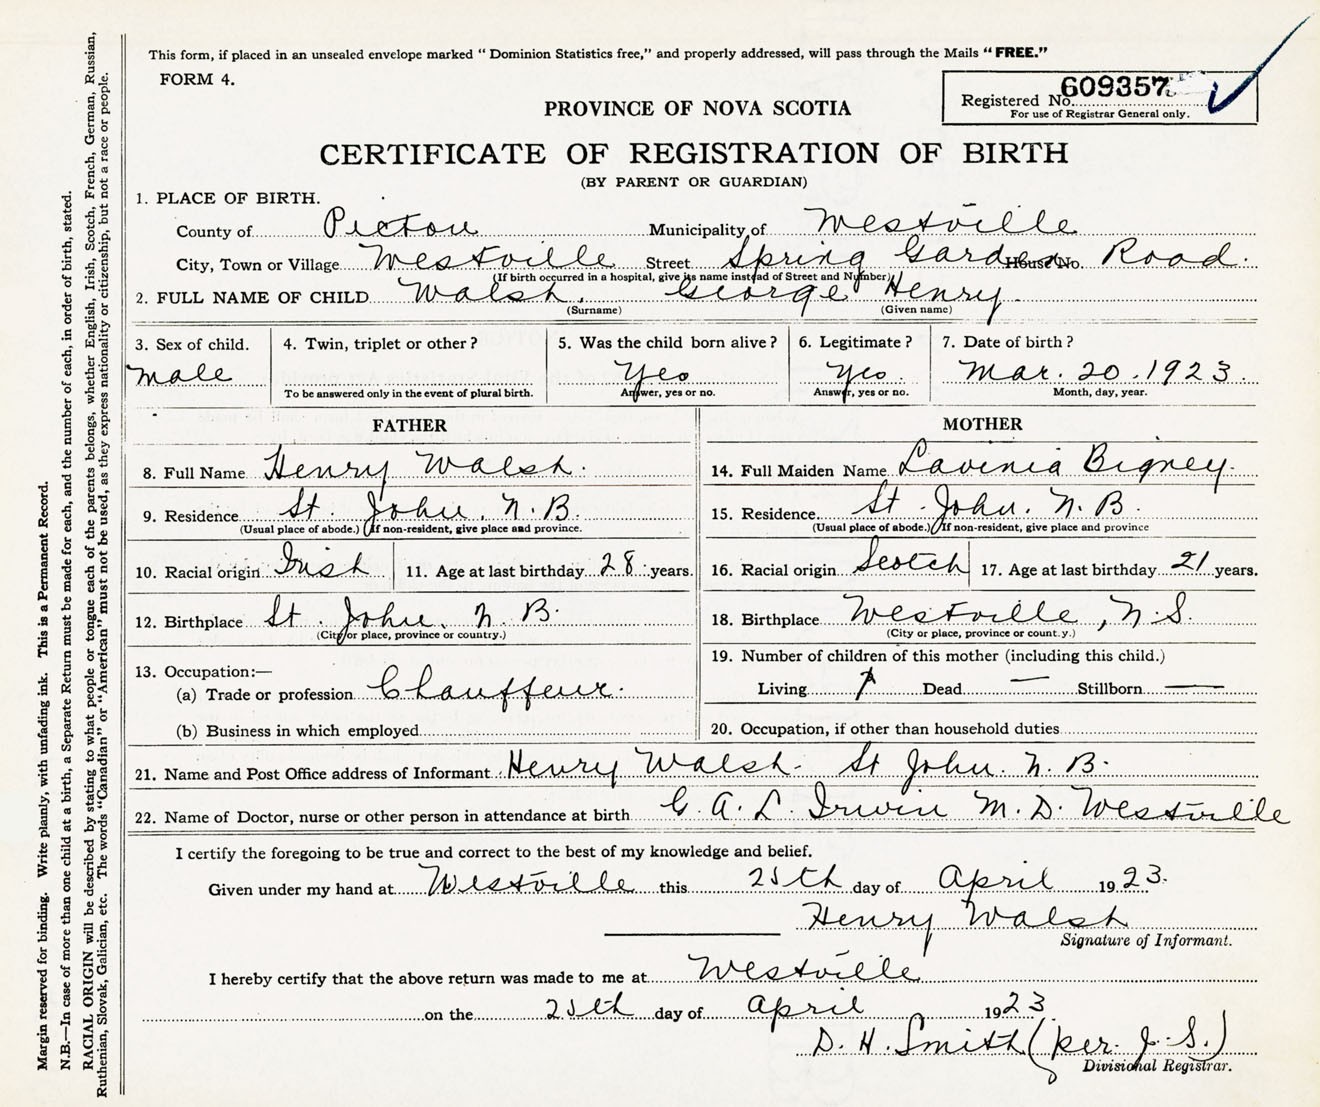 This form, if placed in an unsealed envelope marked "Dominion Statistics free," and properly addressed, will pass through the Mails "FREE."
FORM 4.
Registered No. 609357
For use of Registrar General only.
PROVINCE OF NOVA SCOTIA
CERTIFICATE OF REGISTRATION OF BIRTH
(BY PARENT OR GUARDIAN)
1. PLACE OF BIRTH.
County of Pictou Municipality of Westville
City, Town or Village Westville Street Spring Garden House No. Road.
(If birth occurred in a hospital, give its name instead of Street and Number)
2. FULL NAME OF CHILD Walsh, George Henry
(Surname) (Given name)
3. Sex of child. 4. Twin, triplet or other? 5. Was the child born alive? 6. Legitimate? 7. Date of birth?
male Yes Yes. Mar. 20. 1923.
To be answered only in the event of plural birth. Answer, yes or no. Answer, yes or no. Month, day, year.
FATHER MOTHER
8. Full Name Henry Walsh. 14. Full Maiden Name Lavinia Bigney.
9. Residence St. John, N.B. 15. Residence St. John, N.B.
(Usual place of abode.) (If non-resident, give place and province. (Usual place of abode.) (If non-resident, give place and province
10. Racial origin Irish 11. Age at last birthday 28 years. 16. Racial origin Scotch 17. Age at last birthday 21 years.
12. Birthplace St. John, N.B. 18. Birthplace Westville, N.S.
(City or place, province or country.) (City or place, province or country.)
13. Occupation:— 19. Number of children of this mother (including this child.)
(a) Trade or profession Chauffeur. Living 1 Dead — Stillborn —
(b) Business in which employed 20. Occupation, if other than household duties
21. Name and Post Office address of Informant Henry Walsh - St John. N.B.
22. Name of Doctor, nurse or other person in attendance at birth C. A. L. Irwin M.D. Westville
I certify the foregoing to be true and correct to the best of my knowledge and belief.
Given under my hand at Westville this 25th day of April 1923.
Henry Walsh
Signature of Informant.
I hereby certify that the above return was made to me at Westville
on the 25th day of April 1923
D. H. Smith (per. J. S.)
Divisional Registrar.
Margin reserved for binding. Write plainly, with unfading ink. This is a Permanent Record.
N.B.—In case of more than one child at a birth, a Separate Return must be made for each, and the number of each, in order of birth, stated.
RACIAL ORIGIN will be described by stating to what people or tongue each of the parents belongs, whether English, Irish, Scotch, French, German, Russian,
Ruthenian, Slovak, Galician, etc. The words "Canadian" or "American" must not be used, as they express nationality or citizenship, but not a race or people.